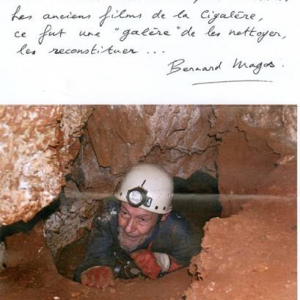 Les anciens films de la Cigalère,
ce fut une "galère" de les nettoyer,
les reconstituer ...
Bernard Magos.